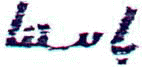 باستا